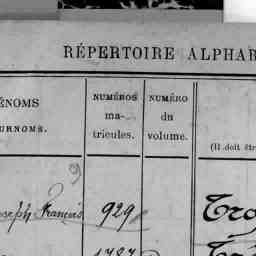 RÉPERTOIRE ALPHAB
ÉNOMS
URNOMS.
NUMÉROS
ma-
tricules.
NUMÉRO
du
volume.
(Il doit êtr
9
oseph François 929
Tro
1787